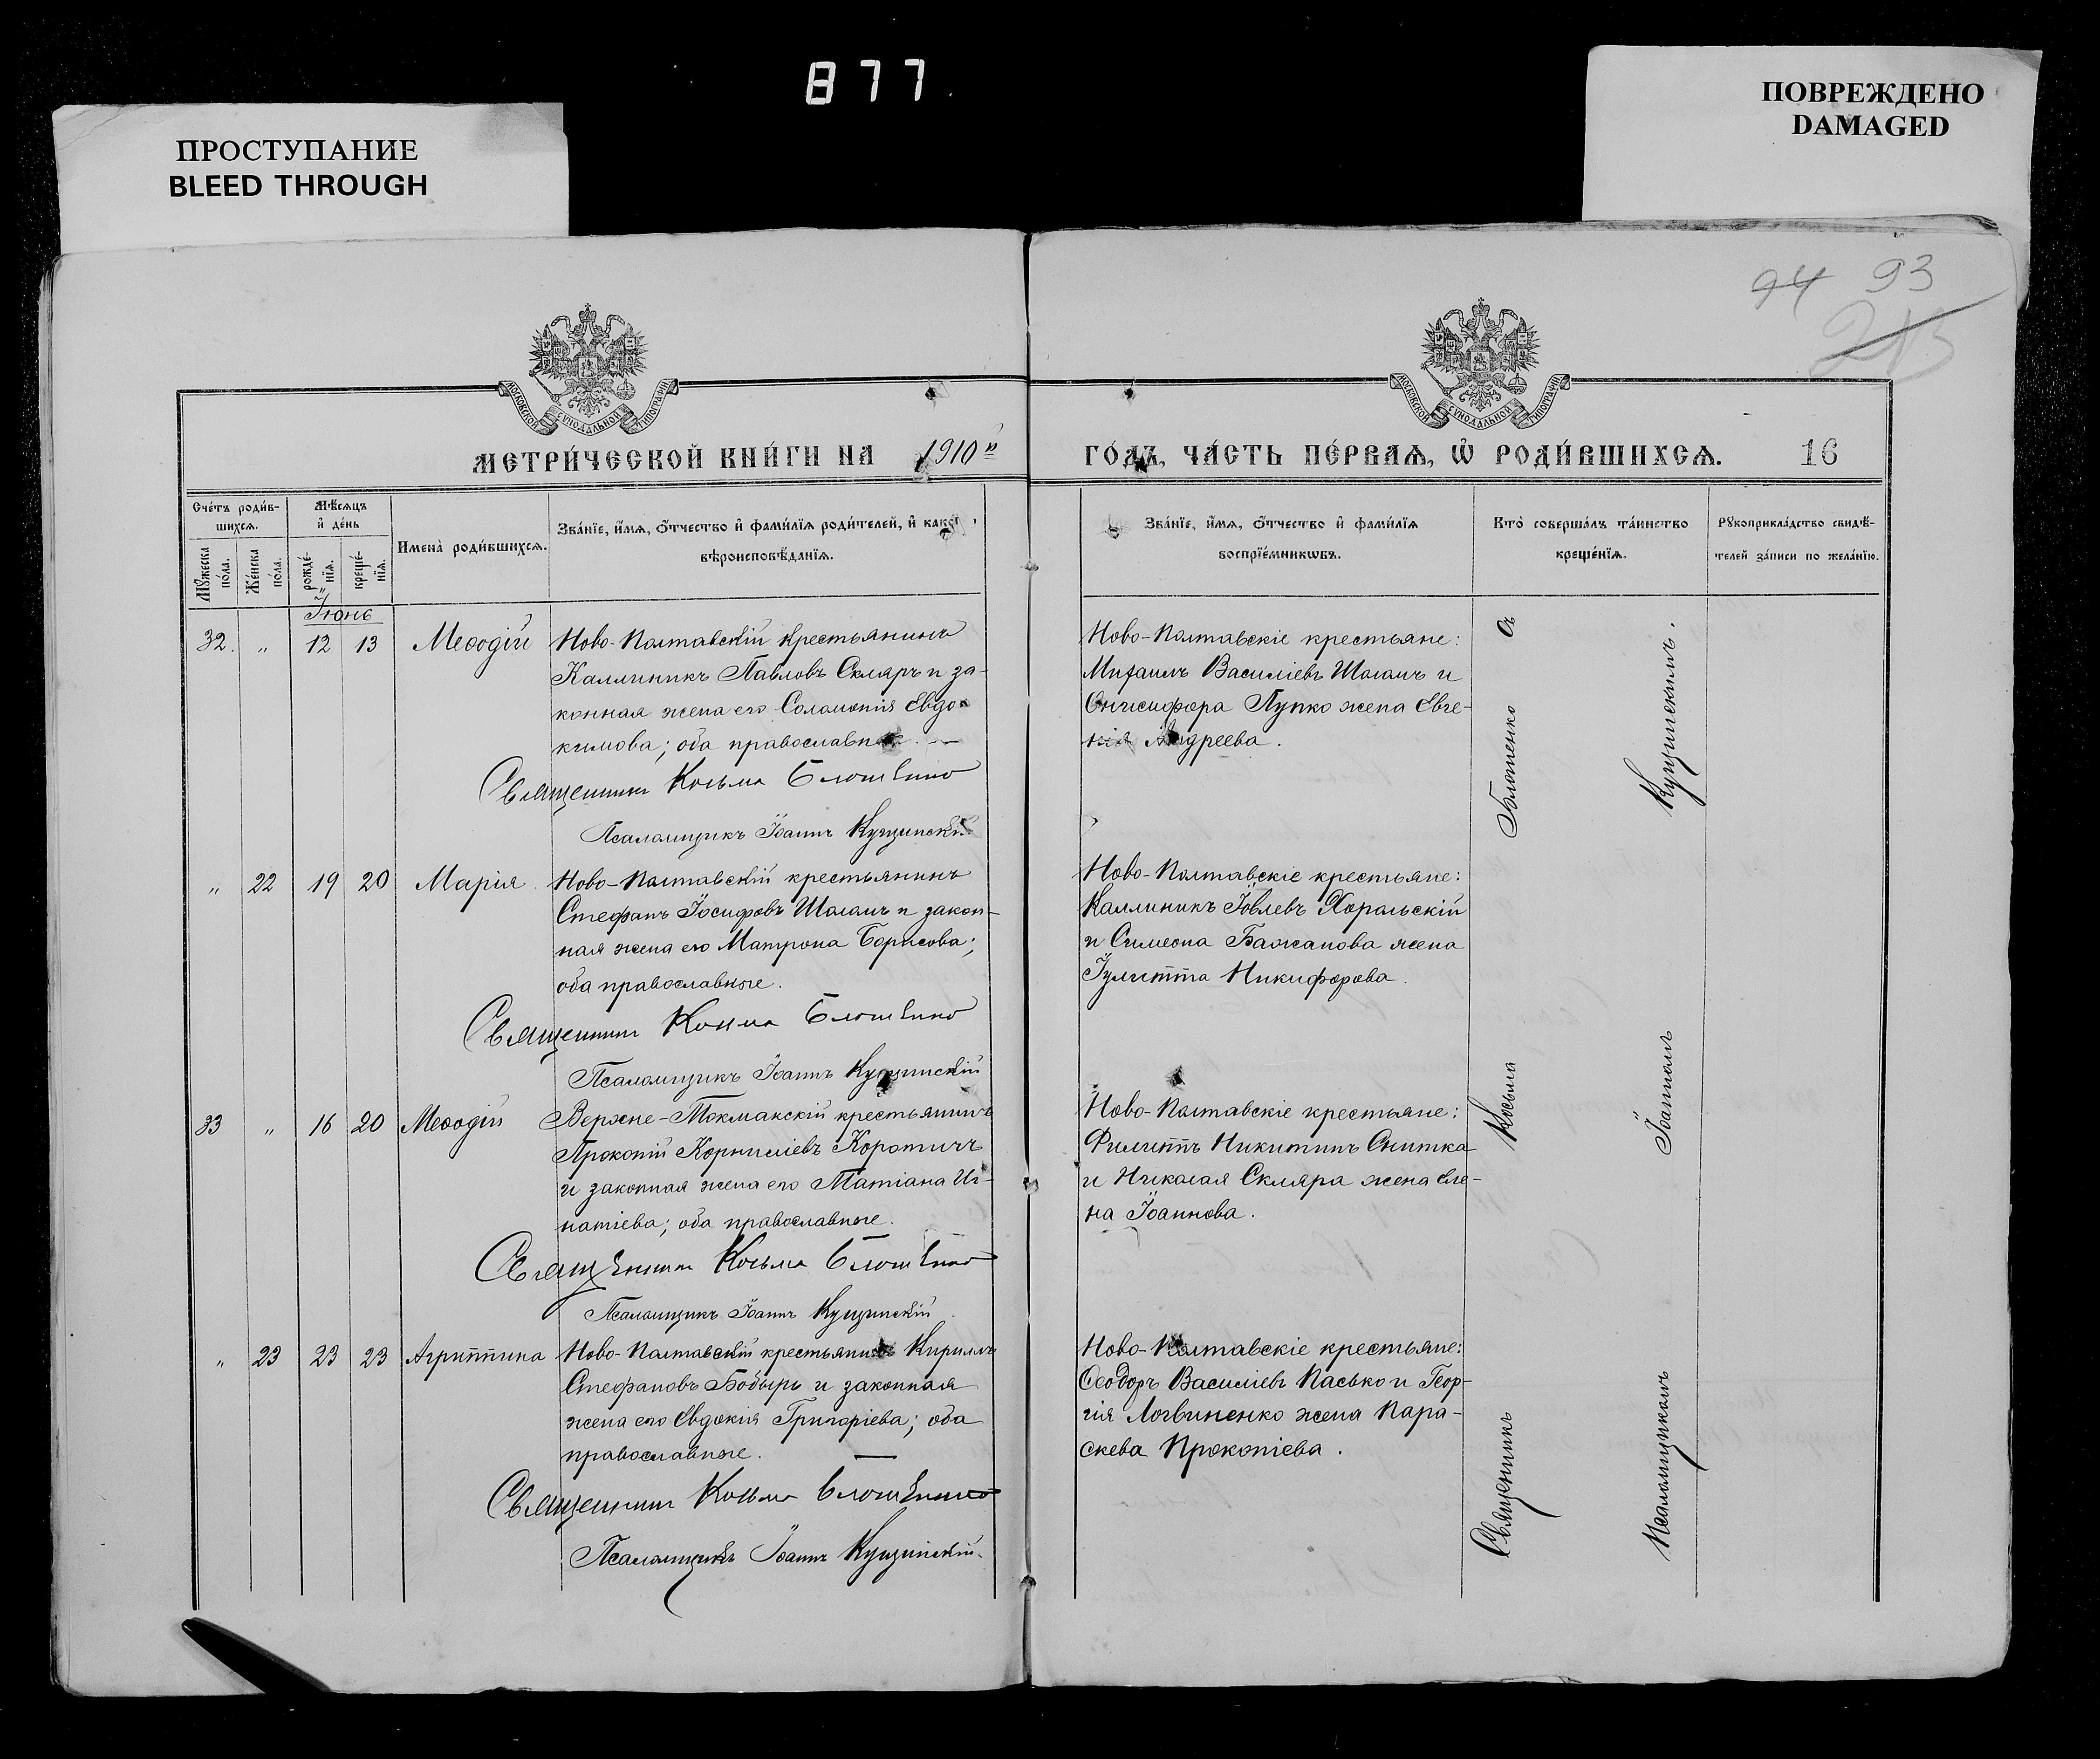 877
ПРОСТУПАНИЕ
BLEED THROUGH
ПОВРЕЖДЕНО
DAMAGED
94 93
213
МОСКОВСКОЙ СѴНОДАЛЬНОЙ ТИПОГРАФІИ
МОСКОВСКОЙ СѴНОДАЛЬНОЙ ТИПОГРАФІИ
МЕТРИ́ЧЕСКОЙ КНИ́ГИ НА 1910й
ГО́ДЪ, ЧА́СТЬ ПЕ́РВАѦ, Ѡ҆ РОДИ́ВШИХСѦ. 16
Сче́тъ роди́в-
шихсѧ.
Мꙋ́жеска по́ла.
Же́нска по́ла.
Мѣ́сѧцъ
и҆ де́нь
рожде́-
нїѧ.
креще́-
нїѧ.
Имена̀ роди́вшихсѧ.
Зва́нїе, и҆́мѧ, ѻ҆́тчество и҆ фами́лїѧ роди́телей, и҆ како́
вѣроисповѣ́данїѧ.
Зва́нїе, и҆́мѧ, ѻ҆́тчество и҆ фами́лїѧ
воспрїе́мникѡвъ.
Кто̀ соверша́лъ та́инство
креще́нїѧ.
Рꙋкоприкла́дство свидѣ́-
телей за́писи по жела́нїю.
Іюнь
32. " 12 13 Меѳодій
Ново-Полтавскій крестьянинъ
Каллиникъ Павловъ Скляръ и за-
конная жена его Соломонія Евдо-
кимова; оба православн
Священникъ Косьма Блошенко
Псаломщикъ Іоаннъ Кущинскій
Ново-Полтавскіе крестьяне:
Михаилъ Василіевъ Шаламъ и
Онисифора Пупко жена Евге-
нія Андреева.
" 22 19 20 Марія
Ново-Полтавскій крестьянинъ
Стефанъ Іосифовъ Шаламъ и закон-
ная жена его Матрона Борисова;
оба православные.
Священникъ Косьма Блошенко
Псаломщикъ Іоаннъ Кущинскій
Ново-Полтавскіе крестьяне:
Каллиникъ Іовлевъ Хоральскій
и Симеона Бажанова жена
Іулитта Никифорова.
33 " 16 20 Меѳодій
Верхне-Токмакскій крестьянинъ
Прокопій Корниліевъ Коротичъ
и законная жена его Татіана Иг-
натіева; оба православные.
Священникъ Косьма Блошенко
Псаломщикъ Іоаннъ Кущинскій
Ново-Полтавскіе крестьяне:
Филиппъ Никитинъ Снитка
и Николая Скляра жена Еле-
на Іоаннова.
" 23 23 23 Агриппина
Ново-Полтавскій крестьянинъ Кириллъ
Стефановъ Бобырь и законная
жена его Евдокія Григоріева; оба
православные.
Священникъ Косьма Блошенко
Псаломщикъ Іоаннъ Кущинскій.
Ново-Полтавскіе крестьяне:
Ѳеодоръ Василіевъ Пасько и Геор-
гія Логвиненко жена Пара-
скева Прокопіева.
Священникъ Косьма Блошенко съ
Псаломщикомъ Іоанномъ Кущинскимъ.